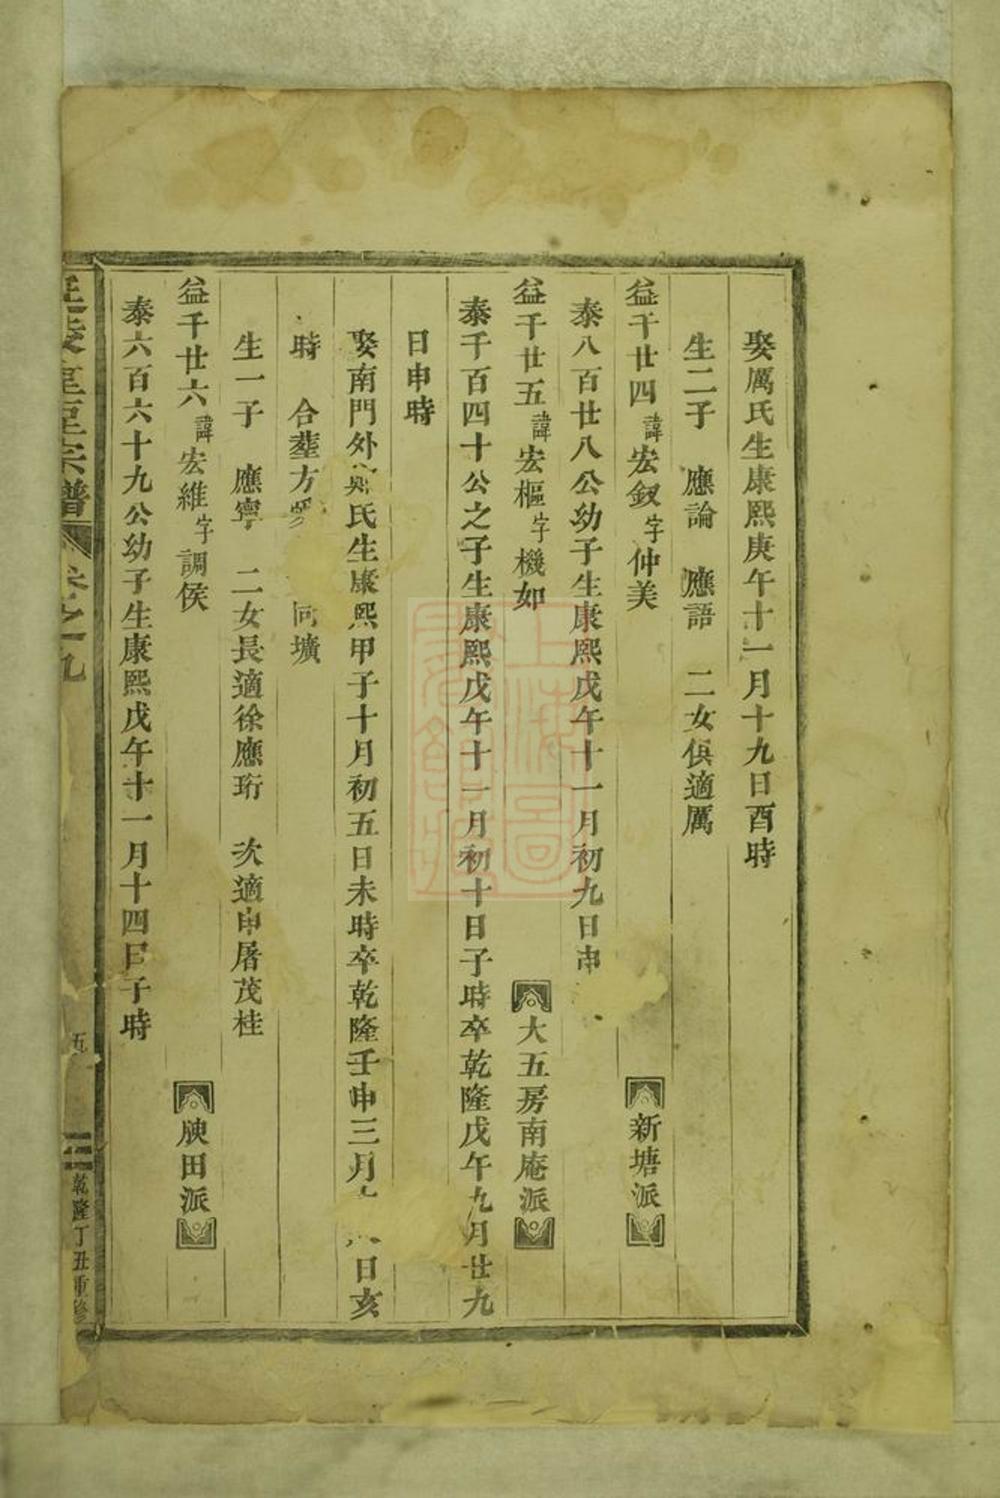 娶厲氏生康熙庚午十一月十九日酉時
生二子 應論 應語 二女俱適厲
益千廿四諱宏釵字仲美 新塘派
泰八百廿八公幼子生康熙戊午十一月初九日申
益千廿五諱宏樞字機如 大五房南庵派
泰千百四十公之子生康熙戊午十一月初十日子時卒乾隆戊午九月廿九
日申時
娶南門外 鄭氏生康熙甲子十月初五日未時卒乾隆壬申三月 日亥
時 合塟方 同壙
生一子 應寧 二女長適徐應珩 次適申屠茂桂
益千廿六諱宏維字調侯 腴田派
泰六百六十九公幼子生康熙戊午十一月十四日子時
宗譜 卷之九 五 乾隆丁丑重修
上海圖書館藏